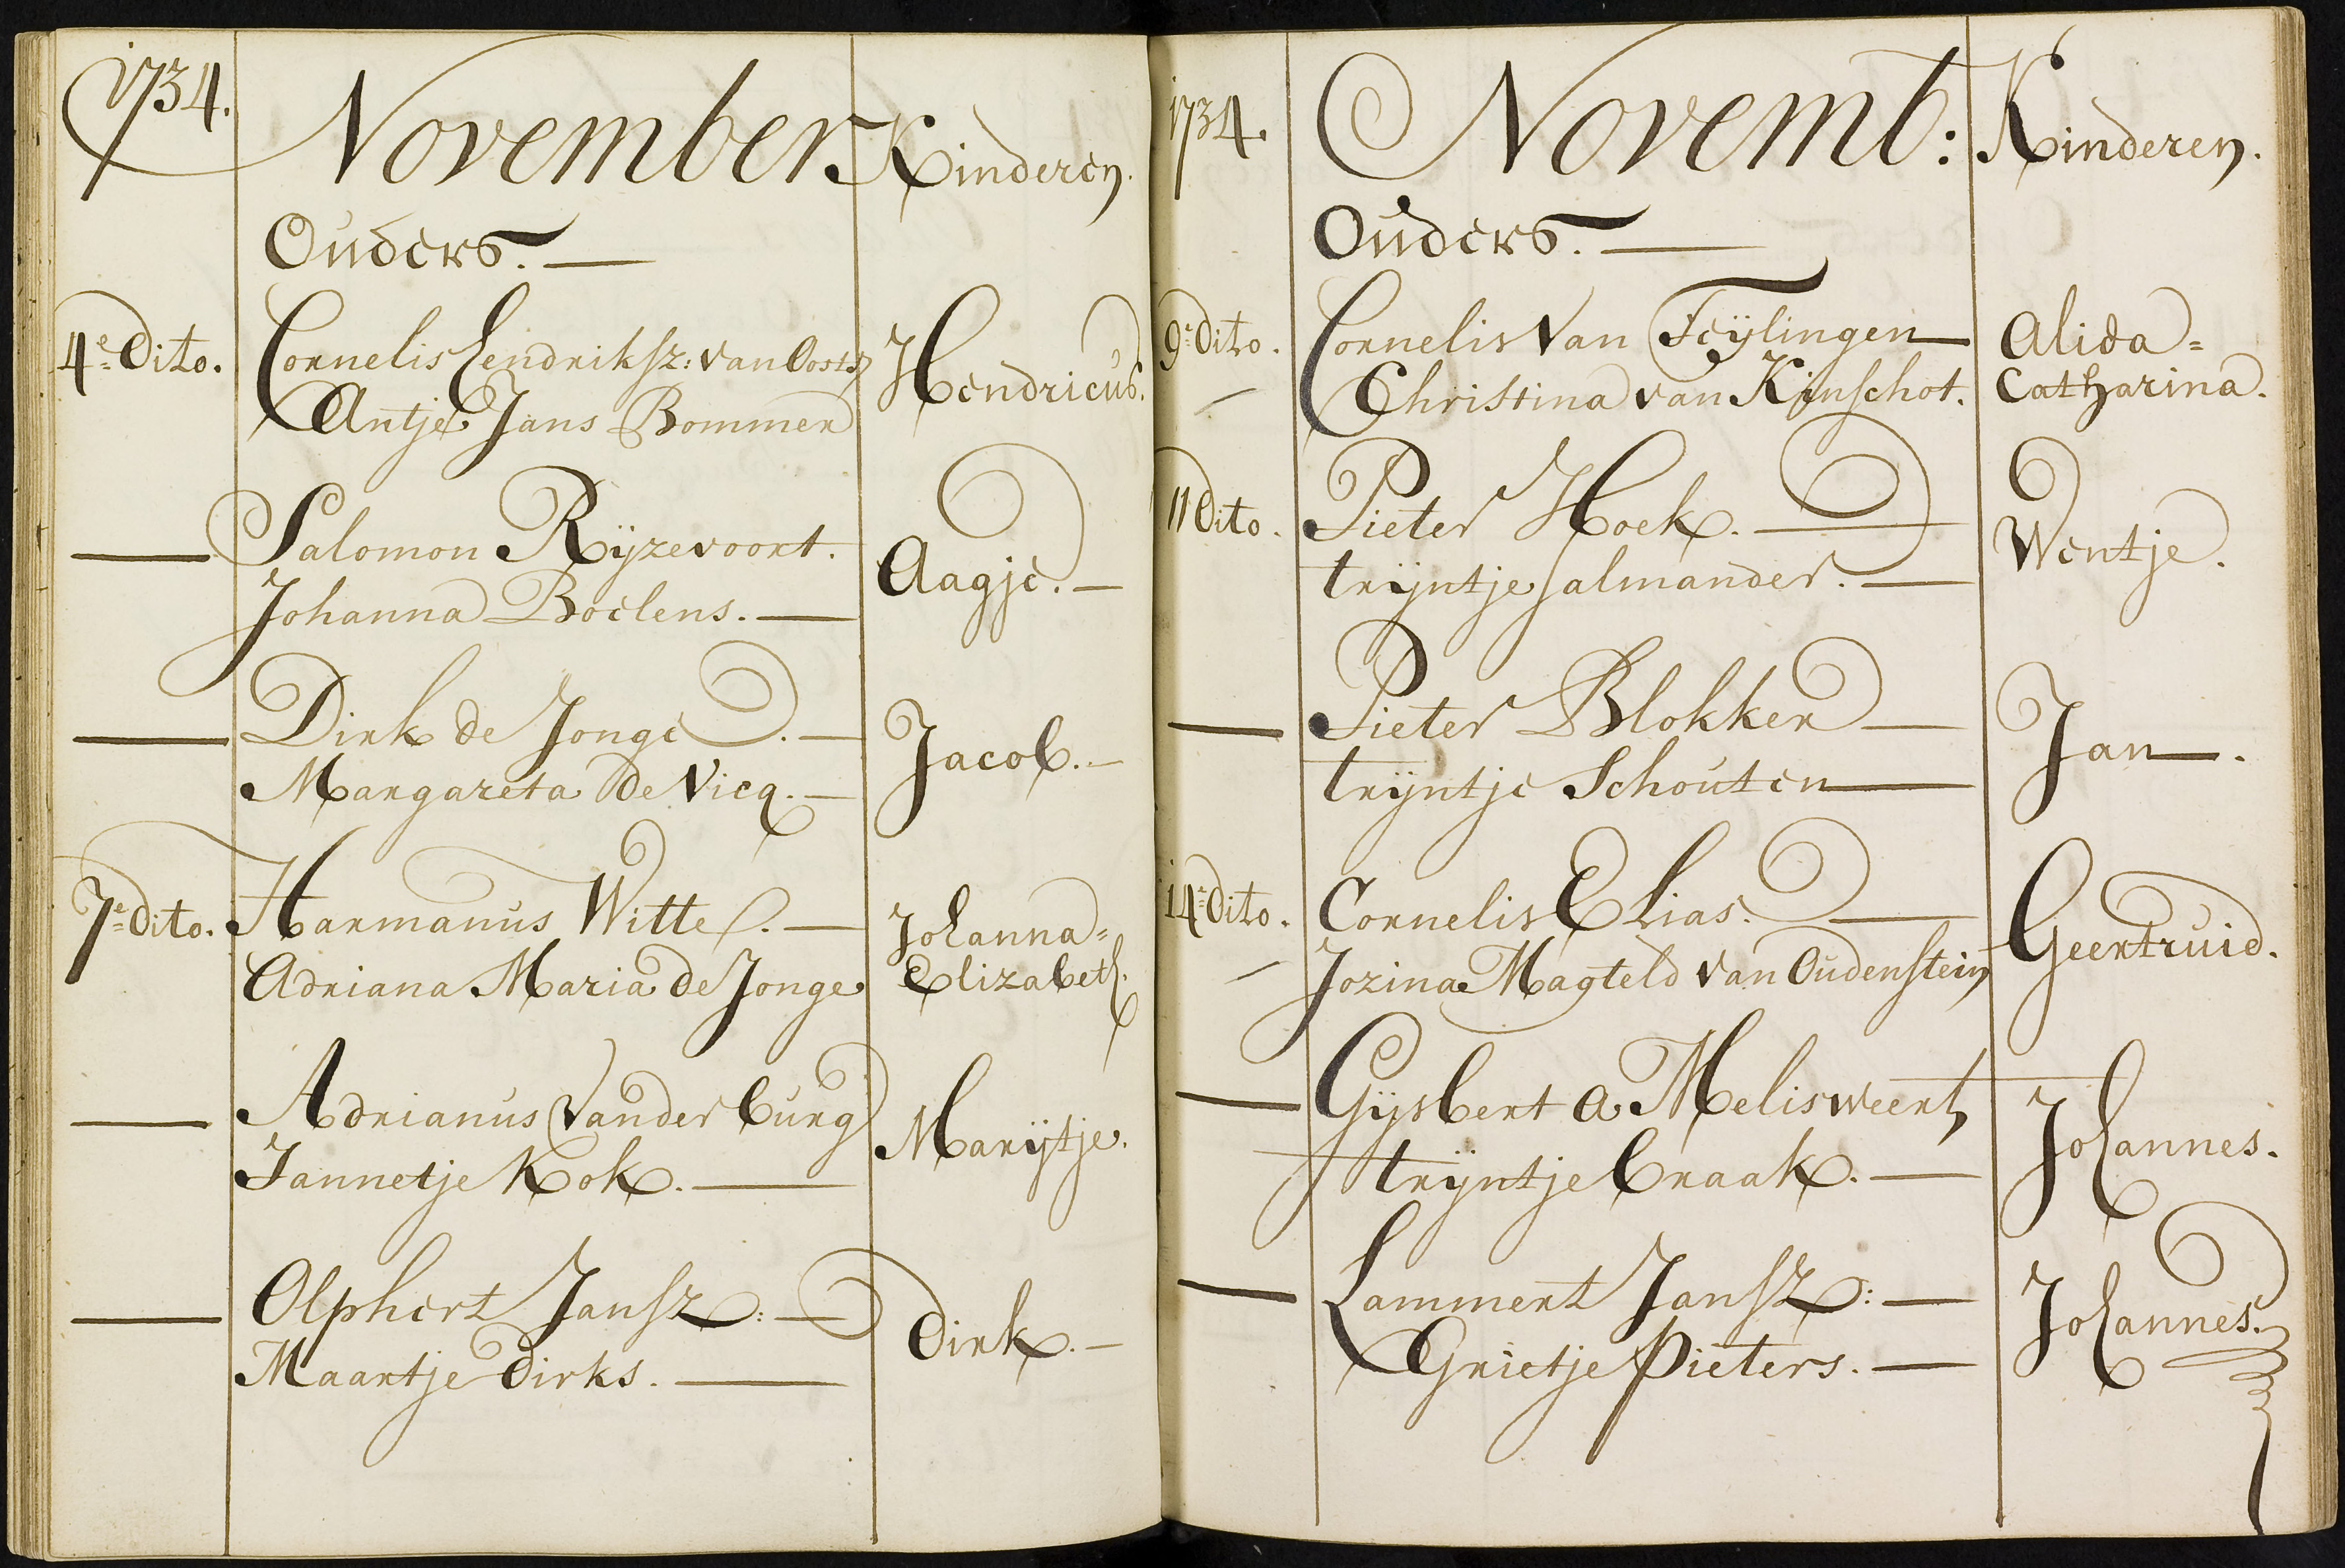 1734.
November
Kinderen.
Ouders.
4e Dito.
Cornelis Hendriksz: van Oosts
Hendricus.
Antje Jans Bommer
Salomon Rijzevoort.
Aagje.
Johanna Boelens.
Dirk de Jonge.
Jacob.
Margareta de Vicq.
7e dito.
Harmanus Witte.
Johanna=
Adriana Maria de Jonge
Elizabeth.
Adrianus Vander burg
Marijtje.
Jannetje Kok.
Olphert Jansz:
Dirk.
Maartje Dirks.
1734.
Novemb:
Kinderen.
Ouders.
9e dito.
Cornelis Van Teÿlingen
Alida=
Christina van Kinschot.
Catharina.
11 Dito.
Pieter Hoek.
Wentje.
trijntje Salmander.
Pieter Blokker
Jan.
trijntje Schouten
14e Dito.
Cornelis Elias.
Geertruid.
Jozina Magteld van Oudenstein
Gijsbert a Melisweert
Johannes.
trijntje braak.
Lammert Jansz:
Johannes.
Grietje Pieters.